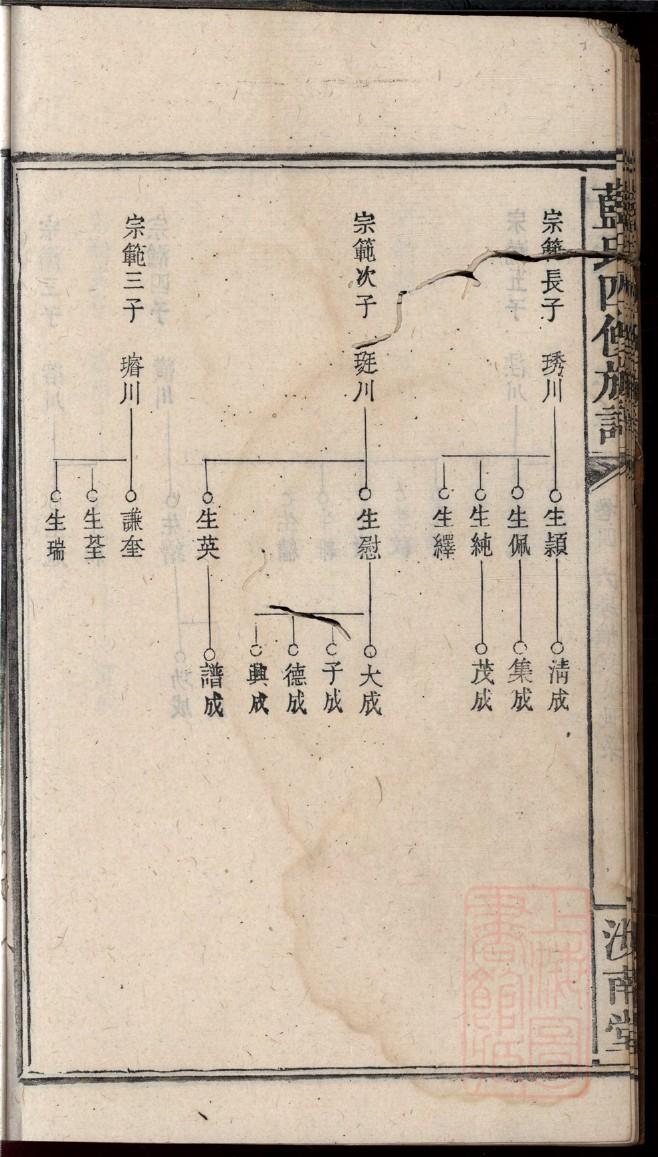 藍氏四修族譜
汝南堂
宗範長子 琇川
生顯
生佩
生純
生繹
清成
集成
茂成
宗範次子 珽川
生慰
生英
大成
子成
德成
興成
譜成
宗範三子 璿川
謙奎
生荃
生瑞
上海圖書館藏